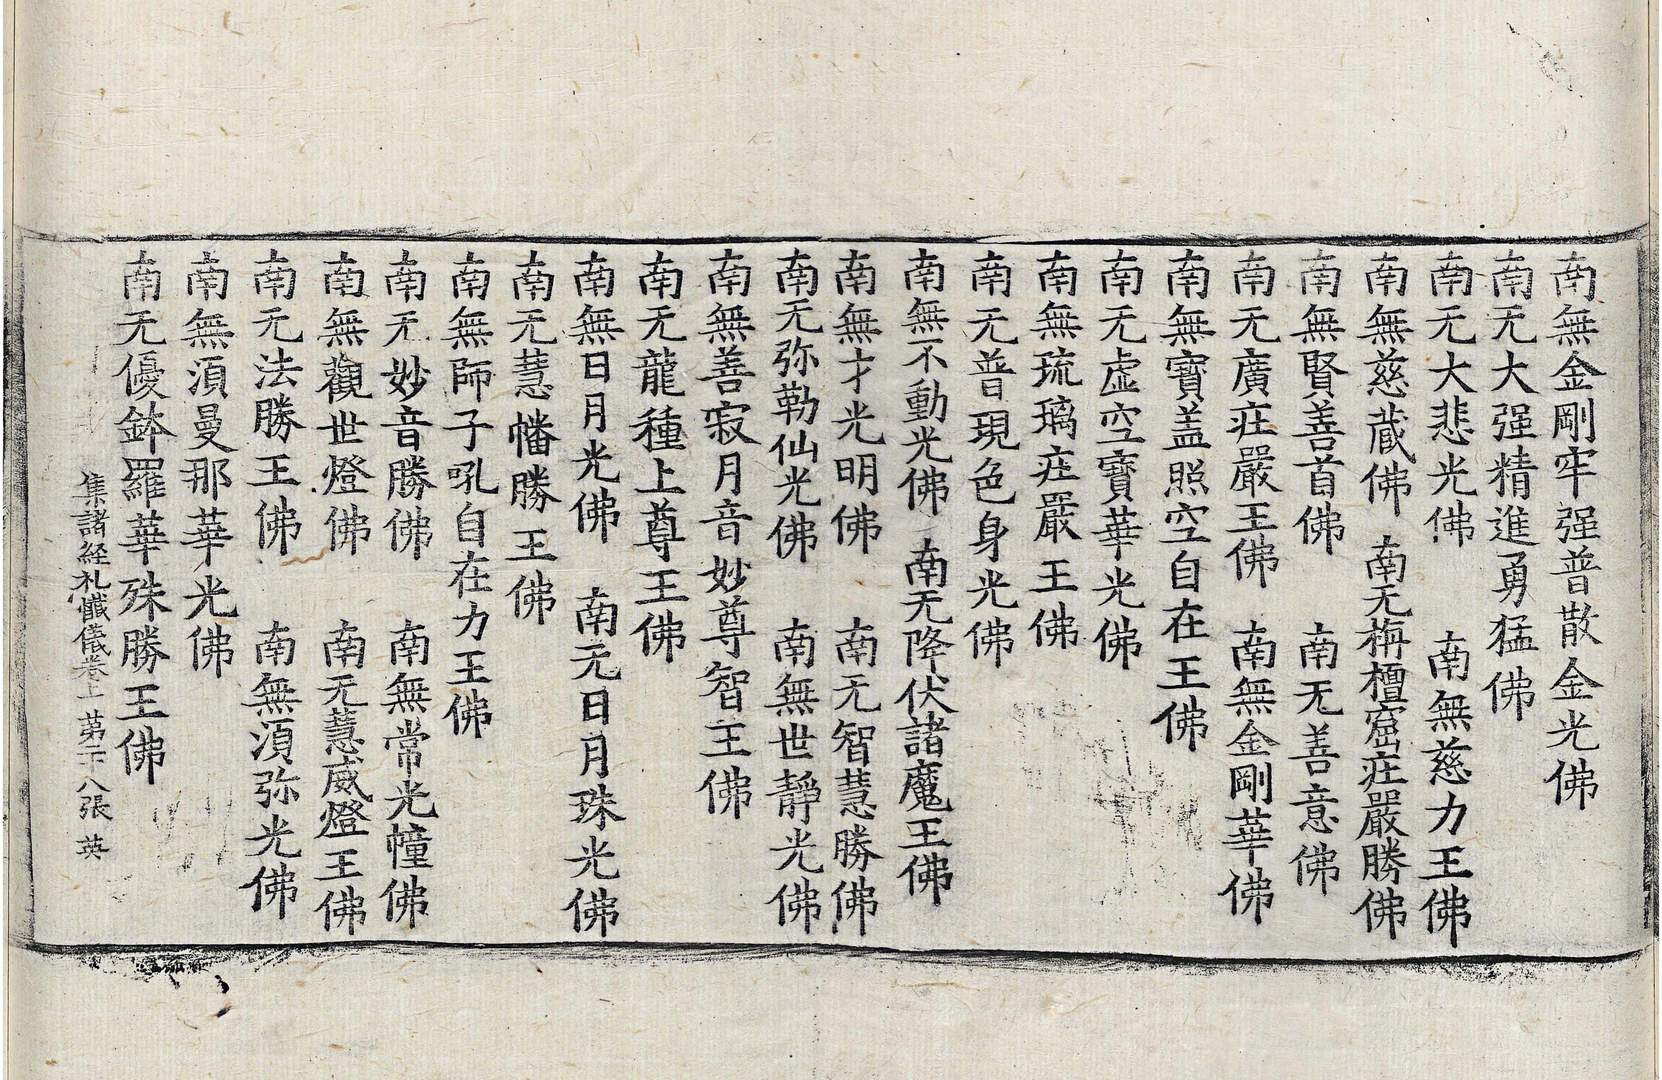 南無金剛牢强普散金光佛
南无大强精進勇猛佛
南无大悲光佛　南無慈力王佛
南無慈蔵佛　南无栴檀窟庄嚴勝佛
南無賢善首佛　南无善意佛
南无廣庄嚴王佛　南無金剛華佛
南無寶盖照空自在王佛
南无虛空寶華光佛
南無琉璃庄嚴王佛
南无普現色身光佛
南無不動光佛　南无降伏諸魔王佛
南無才光明佛　南无智慧勝佛
南无弥勒仙光佛　南無世靜光佛
南無善寂月音妙尊智王佛
南无龍種上尊王佛
南無日月光佛　南无日月珠光佛
南无慧幡勝王佛
南無師子吼自在力王佛
南无妙音勝佛　南無常光幢佛
南無觀世燈佛　南无慧威燈王佛
南无法勝王佛　南無湏弥光佛
南無湏曼那華光佛
南无優鉢羅華殊勝王佛
集諸經礼懺儀卷上　苐二十八張　英